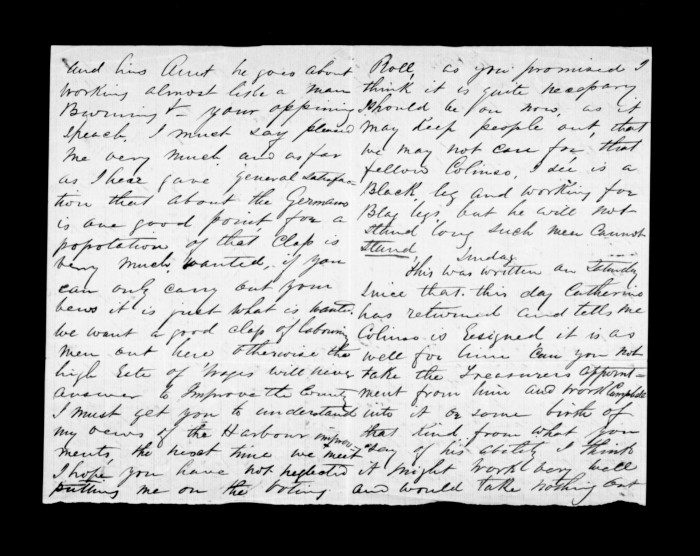 and his Aunt he goes about
working almost like a man
Burning & your oppining
speach. I must say pleased
me very much and as far
as I hear gave general satisfac
tion that about the Germans
is one good point for a
popolation of that Class is
very much wanted, if you
can only carry out your
vews it is just what is wanted
we want a good class of labouring
men out here otherwise the
high Rete of Wages will never
answer to Improve the County
I must get you to understand
my vews of the Harbour improv-
ments the next time we meet
I hope you have not neglected
putting me on the Voting
Roll, as you promised I
think it is quite necessary
I should be on now, as it
may keep people out, that
we may not care for, that
fellow Colinso, I see is a
Black leg and working for
Blag legs, but he will not
stand long such men Cannot
stand,
Sunday
This was written on Saturday
Since that this day Catherine
has returned and tells me
Colinso is Resigned it is as
well for him Can you not
take the Treasurers appoint-
ment from him and work Campbell
into it or some birth of
that kind from what you
say of his ability I think
it might work very well
and would take nothing out